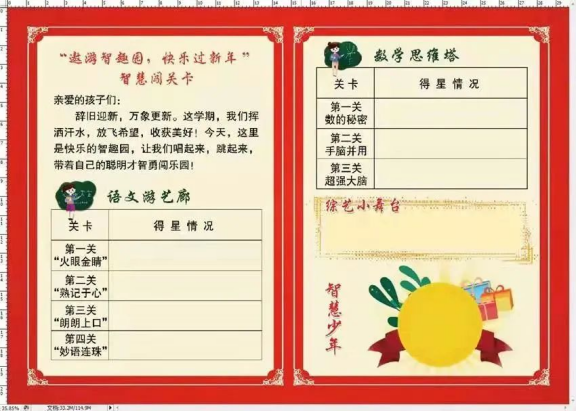 “遨游智趣园，快乐过新年”
智慧闯关卡
亲爱的孩子们：
辞旧迎新，万象更新。这学期，我们挥
洒汗水，放飞希望，收获美好！今天，这里
是快乐的智趣园，让我们唱起来，跳起来，
带着自己的聪明才智勇闯乐园！
语文游艺廊
关卡 得星情况
第一关
“火眼金睛”
第二关
“熟记于心”
第三关
“朗朗上口”
第四关
“妙语连珠”
数学思维塔
关卡 得星情况
第一关
数的秘密
第二关
手脑并用
第三关
超强大脑
综艺小舞台
智慧少年